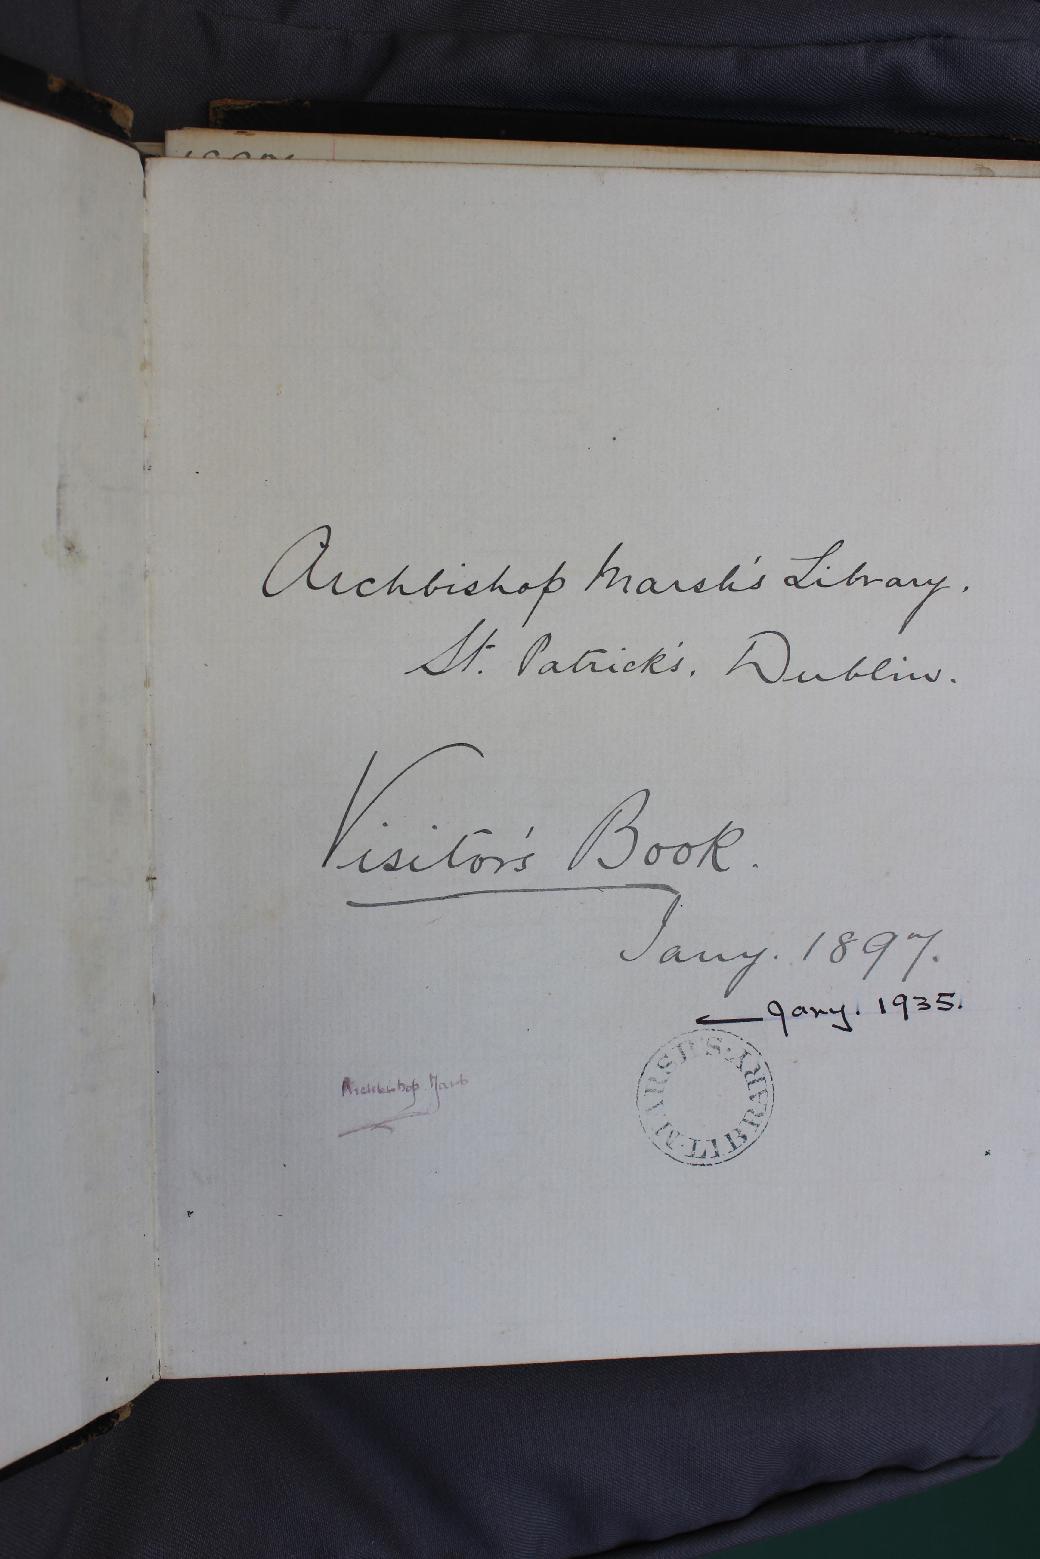 Archbishop Marsh's Library.
St. Patrick's. Dublin.
Visitor's Book.
Jany. 1897.
Jany. 1935.
Archbishop Marsh
MARSH'S · LIBRARY ·